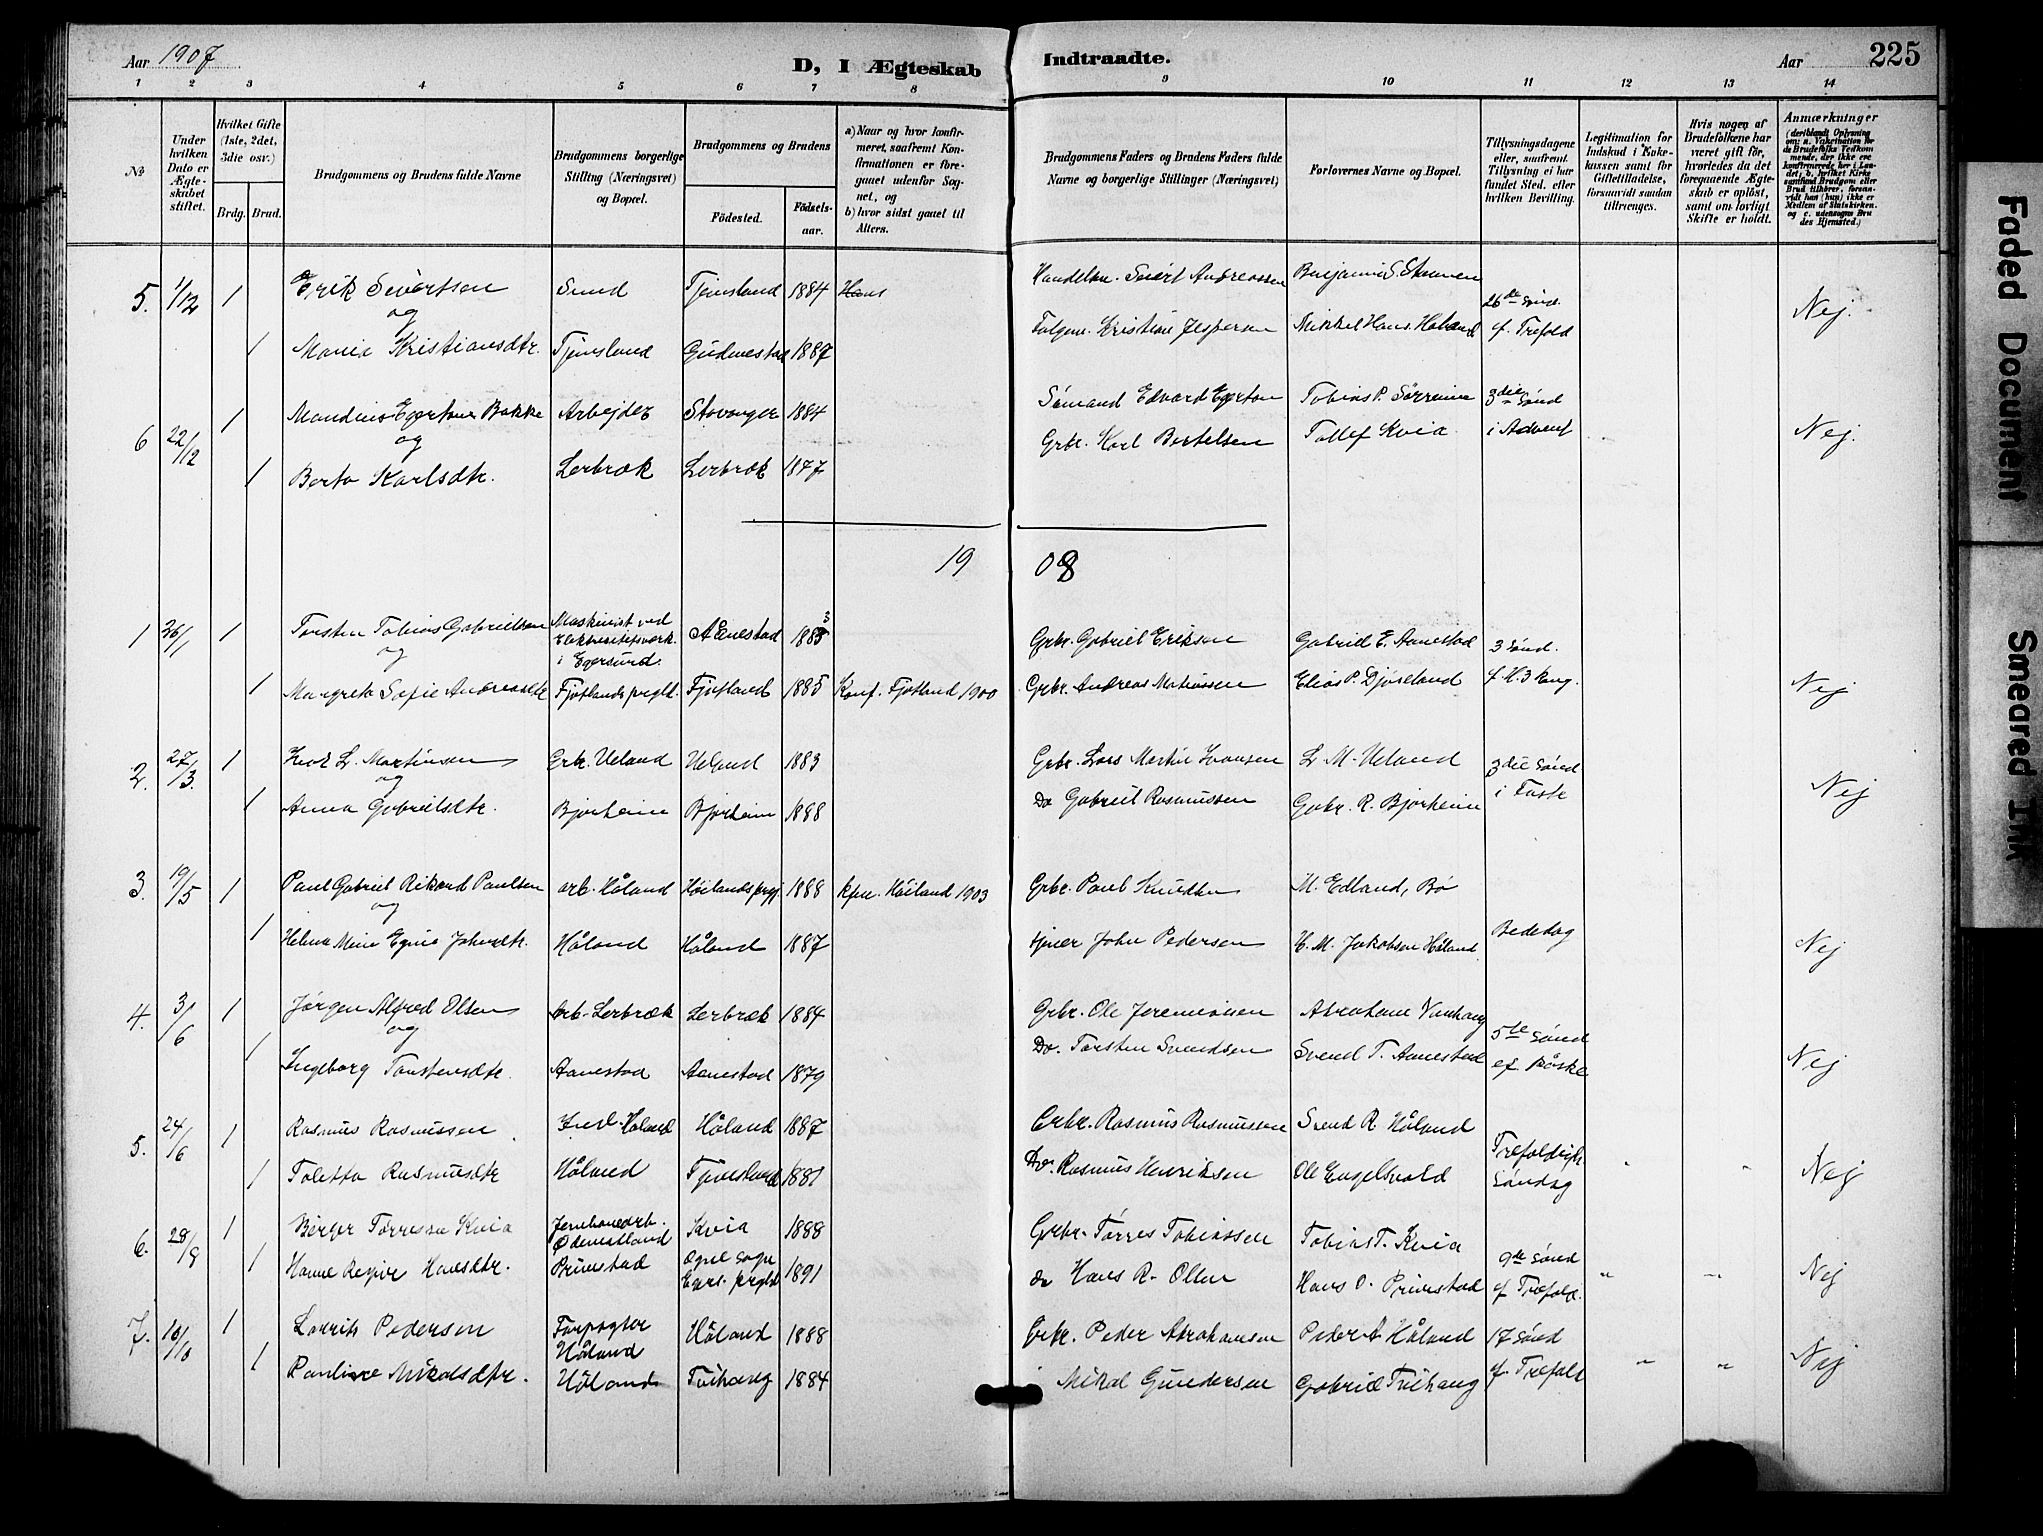 Aar 1907
D, I Ægteskab
Indtraadte.
Aar
225
1 2 3 4 5 6 7 8 9 10 11 12 13 14
No
Under hvilken Dato er Ægteskabet stiftet.
Hvilket Gifte (1ste, 2det, 3die osv.)
Brdg. Brud.
Brudgommens og Brudens fulde Navne
Brudgommens borgerlige Stilling (Næringsvei) og Bopæl.
Brudgommens og Brudens
Fødested.
Fødselsaar.
a) Naar og hvor konfirmeret, saafremt Konfirmationen er foregaaet udenfor Sognet, og
b) hvor sidst gaaet til Alters.
Brudgommens Faders og Brudens Faders fulde Navne og borgerlige Stillinger (Næringsvei)
Forlovernes Navne og Bopæl.
Tillysningsdagene eller, saafremt Tillysning ei har fundet Sted, efter hvilken Bevilling.
Legitimation for Indskud i Enkekassen samt for Giftetilladelse, forsaavidt saadan tiltrænges.
Hvis nogen af Brudefolkene har været gift før, hvorledes da det foregaaende Ægteskab er opløst, samt om lovligt Skifte er holdt.
Anmærkninger
(deriblandt Oplysning om: a. Vaksination for de Brudefolks Vedkommende, der ikke ere konfirmerede her i Landet, b. hvilket Kirkesamfund Brudgom eller Brud tilhører, forsaavidt han (hun) ikke er Medlem af Statskirken, og c. udensogns Brudes Hjemsted.)
5. 1/12 1 Erik Sivertsen Sund Tjensland 1884 Sivert Andreassen 26de Sønd. Nej.
og
1 Maria Kristiansdtr. Tjensland 1887 Kristian Jespersen Mikkel Hans. Håland f. Trefold
6 22/12 1 Egertsen Bakke Arbejder Stavanger 1884 Sømand Edvard Tobias P. 3die Sønd Nej.
og
1 Berta Karlsdtr. Lerbræk Lerbræk 1877 Grbr. Karl Bertelsen Tollef Kvia i Advent
19 08
1 26/1 1 Torsten Tobias Gabrielsen Maskinist ved
i Egersund. Aanestad 1883 Grbr. Gabriel Eriksen Gabriel E. Aanestad 3 Sønd.
og
1 Margreta Sofie Andreasdtr Fjotlands prgld. Fjotland 1885 Konf. Fjotland 1900 Grbr. Andreas Matiassen Elias P. Djøseland f. H. 3 Kong. Nej
2. 27/3. 1 L. Martinsen Grbr. Ueland Ueland 1883 Grbr. Lars Martin L. M. Ueland 3die Sønd
og
1 Anna Gabrielsdtr. Bjorheim Bjorheim 1888 Do Gabriel Rasmussen Gabr. R. Bjorheim i Faste Nej
3. 19/5 1 Paul Gabriel Rikard Paulsen arb. Håland Høilands prgj. 1888 Høiland 1903 Grbr. Paul Knudsen M. Edland, Bø
og
1 Johnsdtr. Håland Håland 1887 John Pedersen H. M. Jakobsen Håland Bededag Nej
4. 3/6 1 Jørgen Alfred Olsen Arb. Lerbræk Lerbræk 1884 Grbr. Ole Jeremiasen Abraham 5te Sønd
og
1 Ingeborg Torstensdtr. Aanestad Aanestad 1879 Do. Torsten Svendsen Svend T. Aanestad ef Påske Nej
5. 24/6 1 Rasmus Rasmussen Håland Håland 1887 Grbr. Rasmus Rasmussen Svend R. Håland Trefoldigh.
1 Toletta Rasmusdtr Håland Tjensland 1881 Do. Rasmus Henriksen Ole Engelsvold Søndag " " Nej
6. 1 Berger Tørressen Kvia Jernbanearb.
Kvia 1888 Grbr. Tørres Tobiassen Tobias T. Kvia 9de Sønd
1 Hansdtr. Brunestad Ogne sogn
Egers. prgld 1891 do Hans R. Olsen Hans O. f Trefold. " " Nej
7. 1 Laurits Pedersen Forpagter
Håland Håland 1888 Grbr. Peder Abrahamsen Peder A Håland 17 Sønd
1 Pauline Mikalsdtr. Håland Tuihaug 1884 Mikal Gundersen Gabriel Tuihaug f. Trefold " " Nej
Faded Document
Smeared Ink